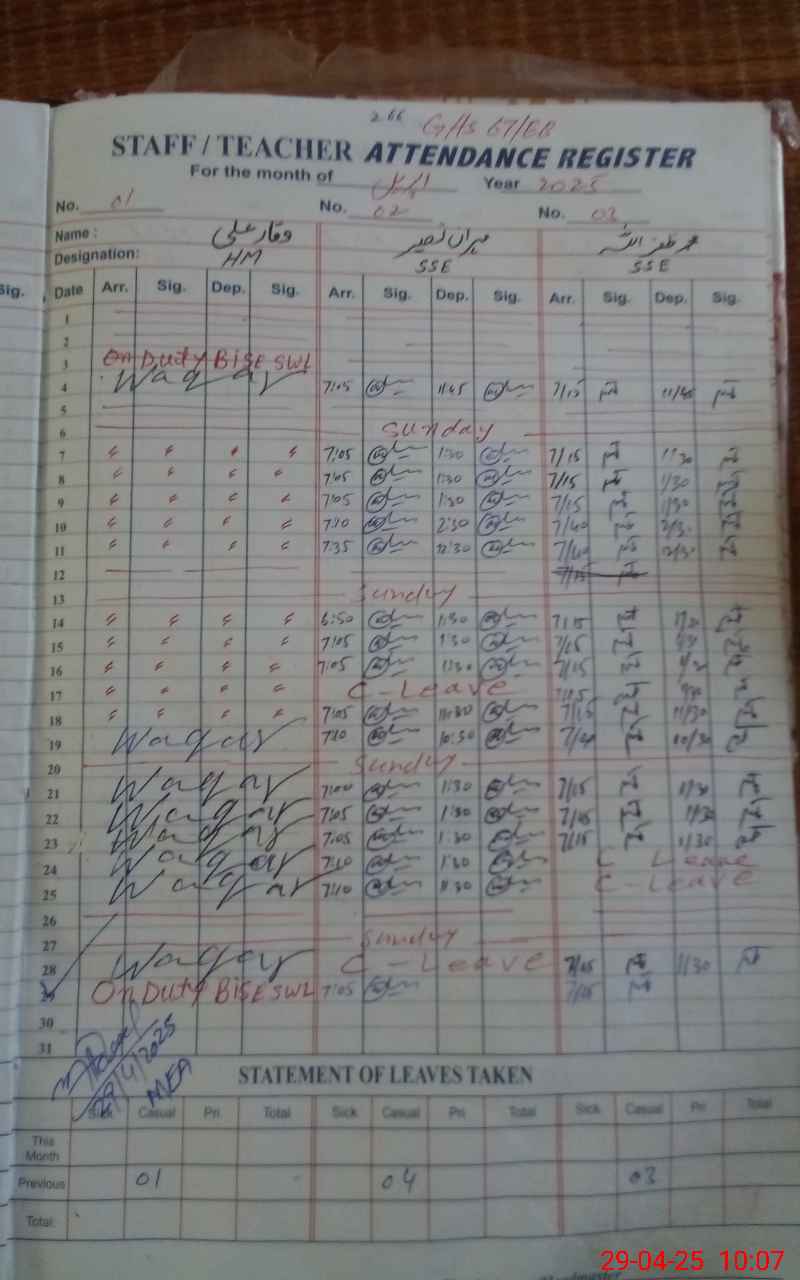 GHS 67/EB
STAFF / TEACHER ATTENDANCE REGISTER
For the month of اپریل Year 2025
No. 01 No. 02 No. 03
Name : وقار علی
Designation: HM SSE SSE
Sig. Date Arr. Sig. Dep. Sig. Arr. Sig. Dep. Sig. Arr. Sig. Dep. Sig.
1
2
3 On Duty BISE SWL
4 Waqar 7:05 11:45 7/15 11/45
5
6 Sunday
7 〃 〃 〃 〃 7:05 1:30 7/15 1/30
8 〃 〃 〃 〃 7:05 1:30 7/15 1/30
9 〃 〃 〃 〃 7:05 1:30 7/15 1/30
10 〃 〃 〃 〃 7:10 2:30 7/40 2/30
11 〃 〃 〃 〃 7:35 12:30 7/40 12/30
12 7/15
13 Sunday
14 〃 〃 〃 〃 6:50 1:30 7/15 1/30
15 〃 〃 〃 〃 7:05 1:30 7/15 1/30
16 〃 〃 〃 〃 7:05 1:30 7/15
17 〃 〃 〃 〃 C-Leave 7/15
18 〃 〃 〃 〃 7:05 11:30 7/15 11/30
19 Waqar 7:10 10:30 10/30
20 Sunday
21 Waqar 7:00 1:30 7/15 1/30
22 Waqar 7:05 1:30 7/15 1/30
23 Waqar 7:05 1:30 7/15 1/30
24 Waqar 7:10 1:30 C Leave
25 Waqar 7:10 11:30 C-Leave
26
27 Sunday
28 Waqar C-Leave 7/15 1/30
29 On Duty BISE SWL 7:05 7/15
30
31
29/4/2025
MEA
STATEMENT OF LEAVES TAKEN
Sick Casual Pri Total Sick Casual Pri Total Sick Casual Pri Total
This Month
Previous 01 04 03
Total
29-04-25 10:07